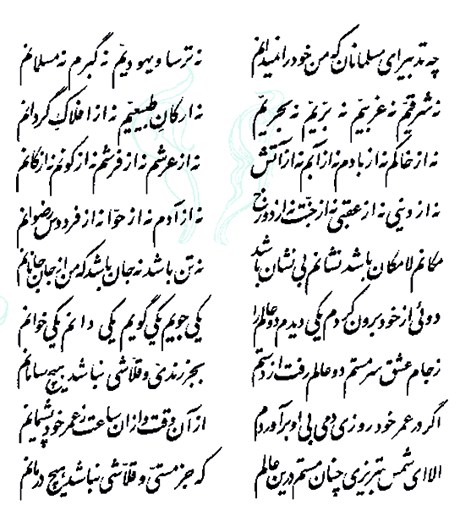 چه تدبیر ای مسلمانان که من خود را نمیدانم نه ترسا و یهودیم نه گبرم نه مسلمانم
نه شرقیم نه غربیم نه بریم نه بحریم نه ارکان طبیعیم نه از افلاک گردانم
نه از خاکم نه از بادم نه از آبم نه از آتش نه از عرشم نه از فرشم نه از کونم نه از کانم
نه از دنیی نه از عقبی نه از جنت نه از دوزخ نه از آدم نه از حوا نه از فردوس رضوانم
مکانم لامکان باشد نشانم بی نشان باشد نه تن باشد نه جان باشد که من از جان جانانم
دوئی از خود برون کردم یکی دیدم دو عالم را یکی جویم یکی گویم یکی دانم یکی خوانم
زجام عشق سرمستم دو عالم رفت از دستم بجز رندی و قلاشی نباشد هیچ سامانم
اگر در عمر خود روزی دمی بی او برآوردم از آن وقت و از آن ساعت ز عمر خود پشیمانم
الا ای شمس تبریزی چنان مستم درین عالم که جز مستی و قلاشی نباشد هیچ درمانم